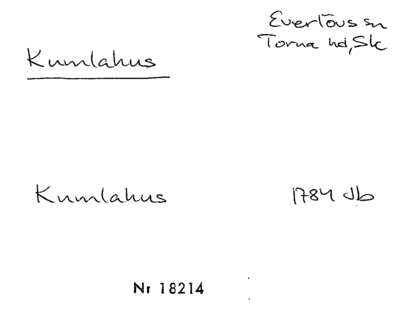 Kumlahus
Everlövs sn
Torna hd, Sk
Kumlahus
1784 Jb
Nr 18214